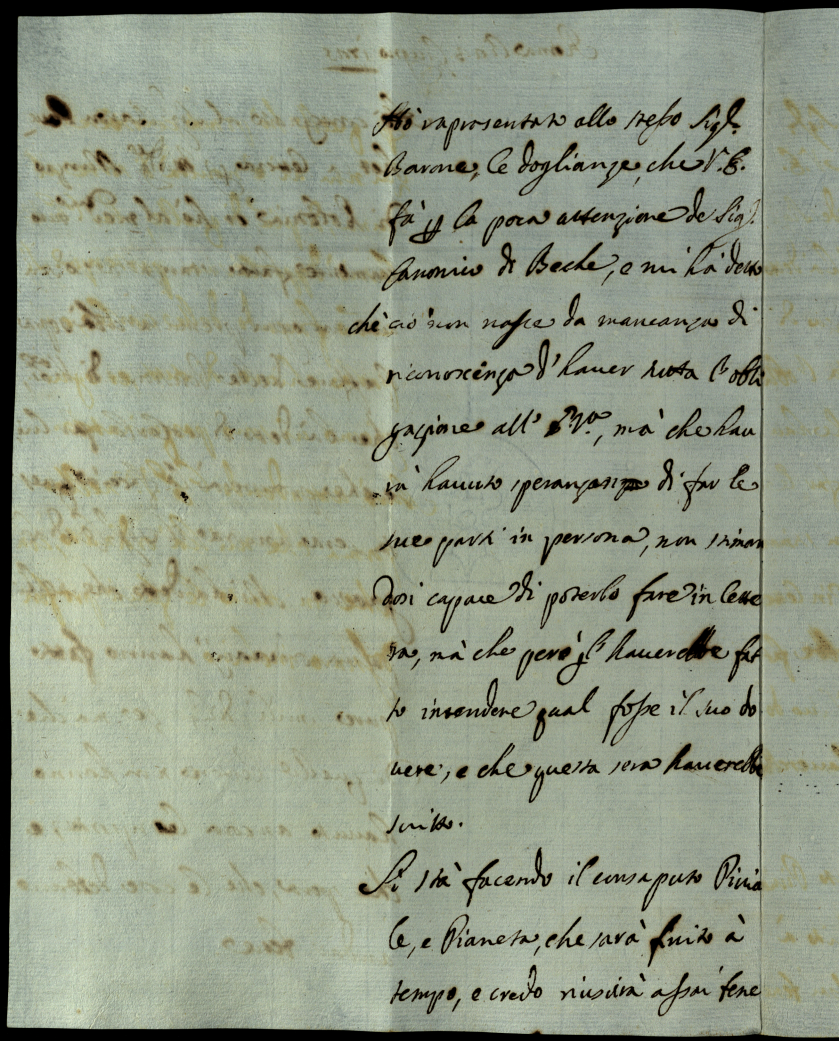 Hò rapresentato allo stesso Sig.r
Barone, le doglianze, che V.E.
fà p la poca attenzione de Sig.r
Canonico di Beche, e mi hà detto
chè ciò non nasce da mancanza di
riconoscenza d'haver tutta l'obli
gazione all' E.V.a, mà che hau
rà hauuto speranza di far le
sue parti in persona, non stiman
dosi capace di poterlo fare in lette
ra, mà che però gl' hauerebbe fat
to intendere qual fosse il suo do
uere, e che questa sera hauerebbe
scritto.
Si stà facendo il consaputo Piuia
le, e Pianeta, che sarà finito à
tempo, e credo riuscirà assai bene